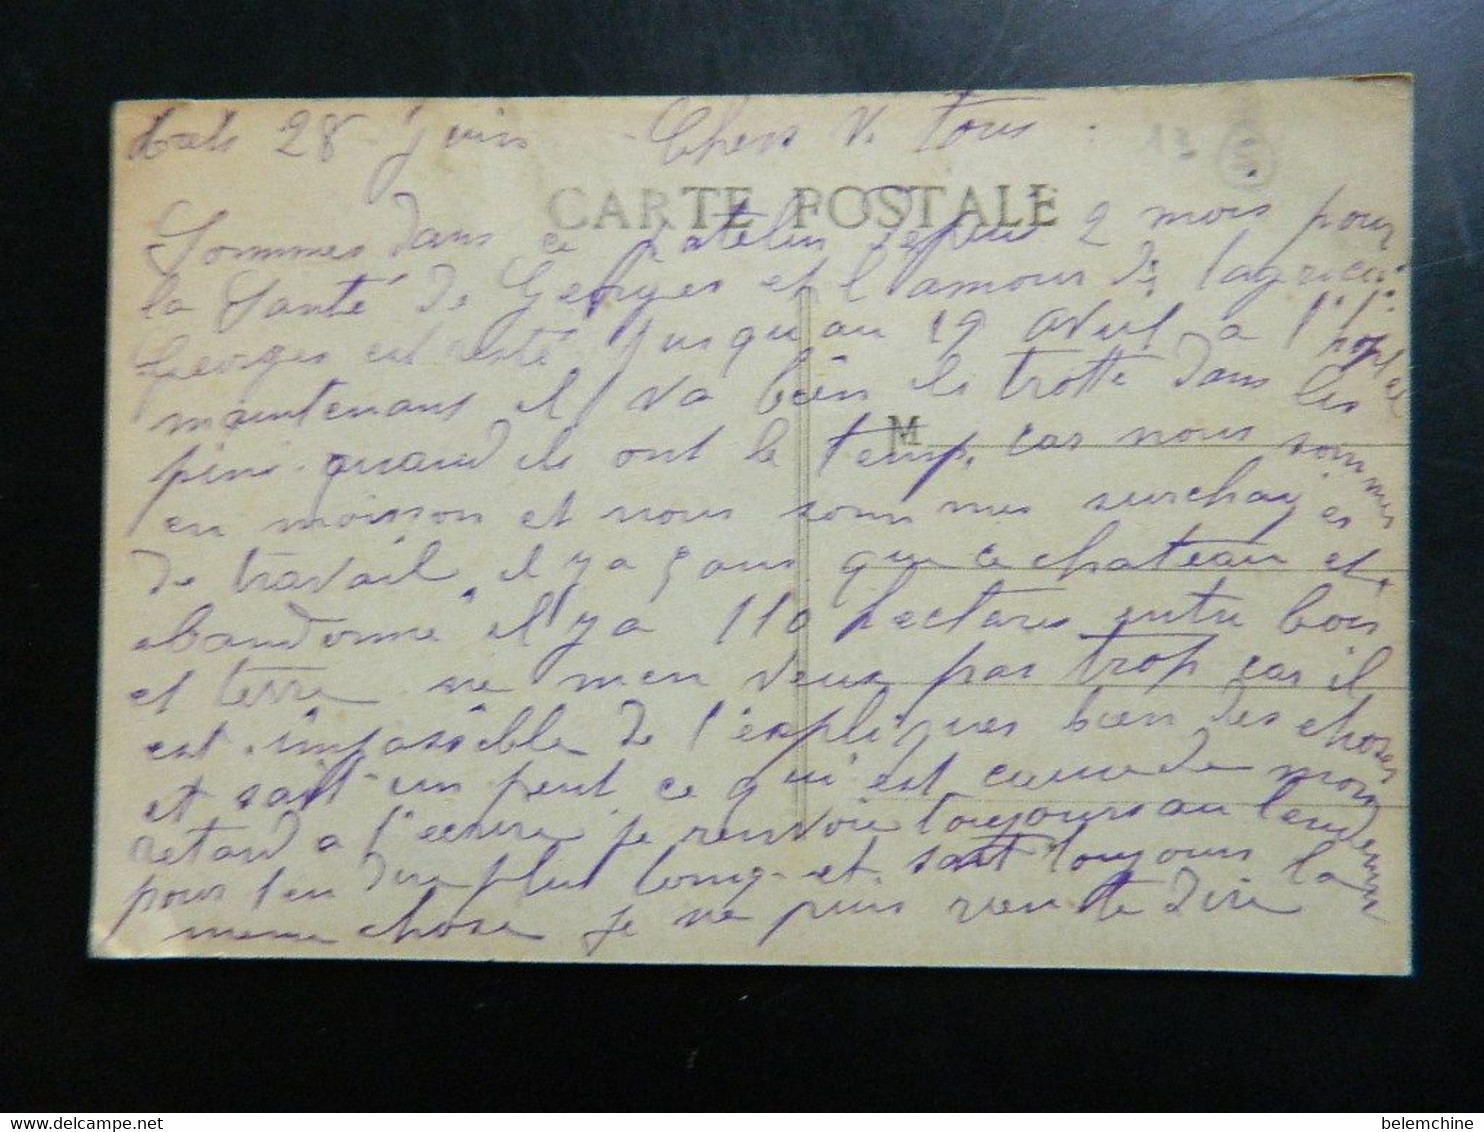 28 Juin - Chers V. Tous :
13
CARTE POSTALE
Sommes dans ce patelin depuis 2 mois pour
la Santé de Georges et l'amour de l'agricu
Georges est resté jusqu'au 19 avril a l'hopital
maintenant il va bien ils trotte dans les
pins quand ils ont le temp, car nous sommes
en moisson et nous sommes surchargés
de travail, il y a 5 ans que ce chateau est
abandonné il y a 110 hectares entre bois
et terre ne m'en veux pas trop car il
est impossible de l'expliquer bien des choses
et sait un peut ce qui est cause de mon
retard a t'ecrire, je renvoie toujours au lendemain
pour t'en dire plus long et sait toujours la
meme chose je ne puis rien te dire
M
belemchine